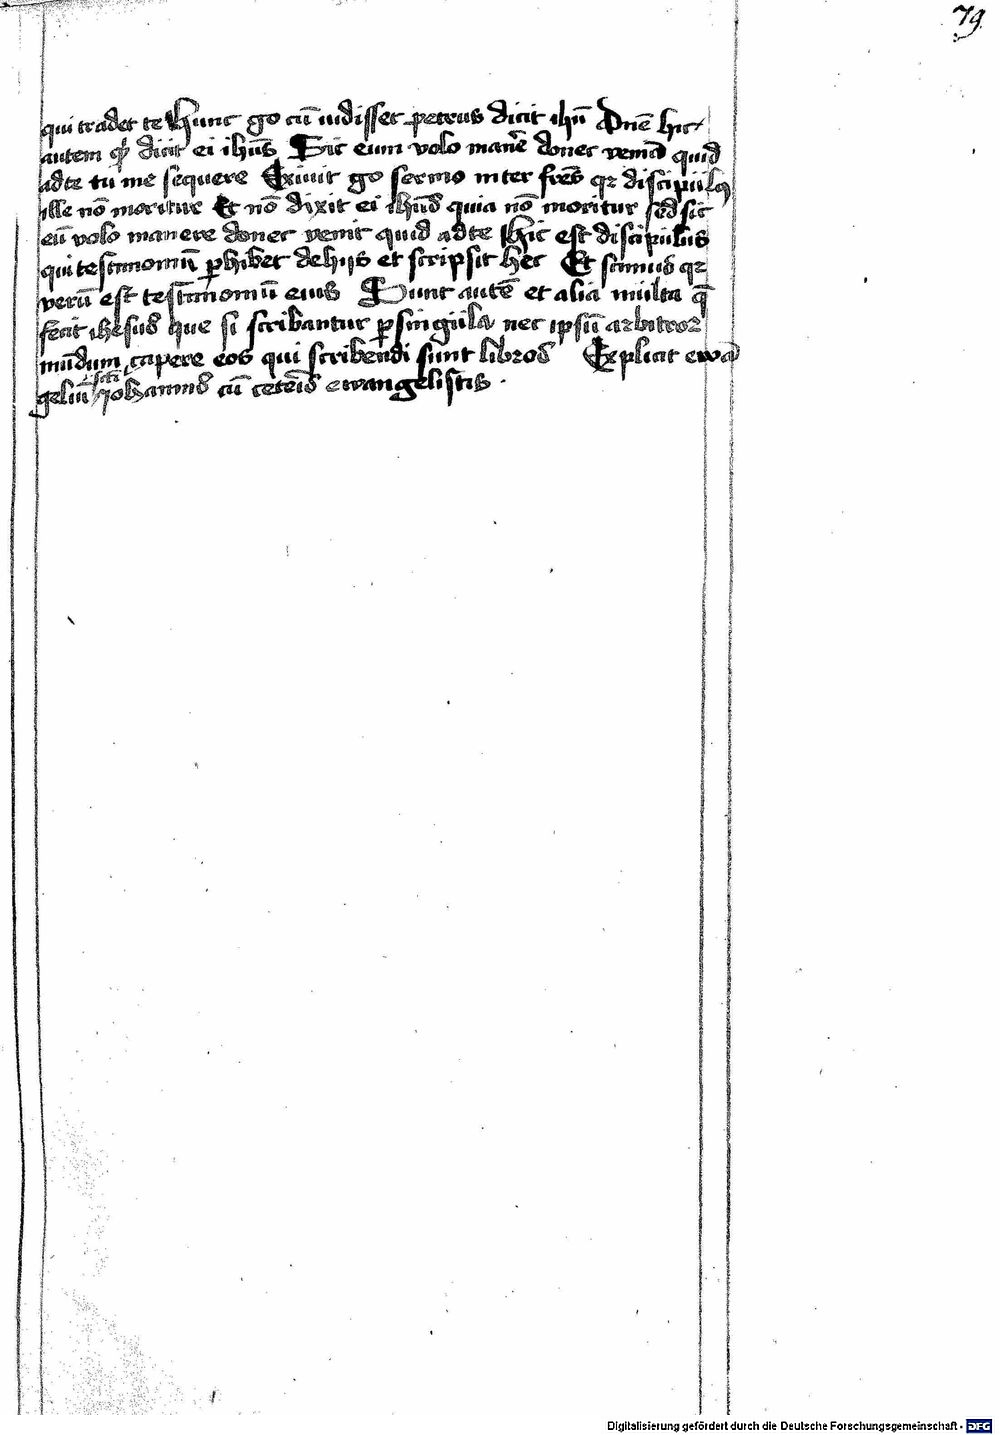 79
qui tradet te Hunc g̊o cū uidisset petrus dicit ihū Dn̄e hic
autem qd̓ dicit ei ihūs Sic eum volo manē donec veniā quid
ad te tu me sequere Exiuit g̊o sermo inter fres̄ qꝛ discipulꝰ
ille nō moritur Et nō dixit ei ihūs quia nō moritur sed sic
eū volo manere donec venit quid ad te Hic est discipulus
qui testimoniū ꝑhibet de hijs et scripsit hec Et scimus qꝛ
verū est testimoniū eius Sunt autē et alia multa q̄
fecit ihesus que si scribantur ꝑ singula nec ipsū arbitror
mūdum capere eos qui scribendi sunt libros Explicit ewā
geliū scī Johannis cū ceteis̄ ewangelistis .
Digitalisierung gefördert durch die Deutsche Forschungsgemeinschaft - DFG